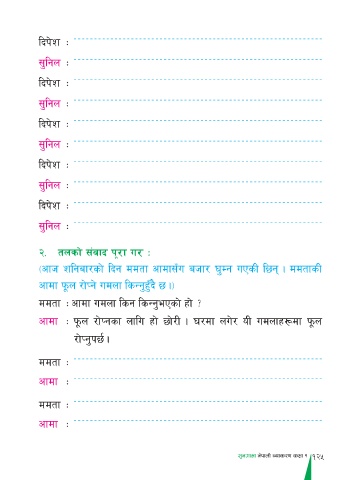 दिपेश :
सुनिल :
दिपेश :
सुनिल :
दिपेश :
सुनिल :
दिपेश :
सुनिल :
दिपेश :
सुनिल :
२. तलको संवाद पूरा गर :
(आज शनिबारको दिन ममता आमासँग बजार घुम्न गएकी छिन् । ममताकी
आमा फूल रोप्ने गमला किन्नुहुँदै छ ।)
ममता : आमा गमला किन किन्नुभएको हो ?
आमा : फूल रोप्नका लागि हो छोरी । घरमा लगेर यी गमलाहरूमा फूल
रोप्नुपर्छ ।
ममता :
आमा :
ममता :
आमा :
नेपाली व्याकरण कक्षा १ १२५